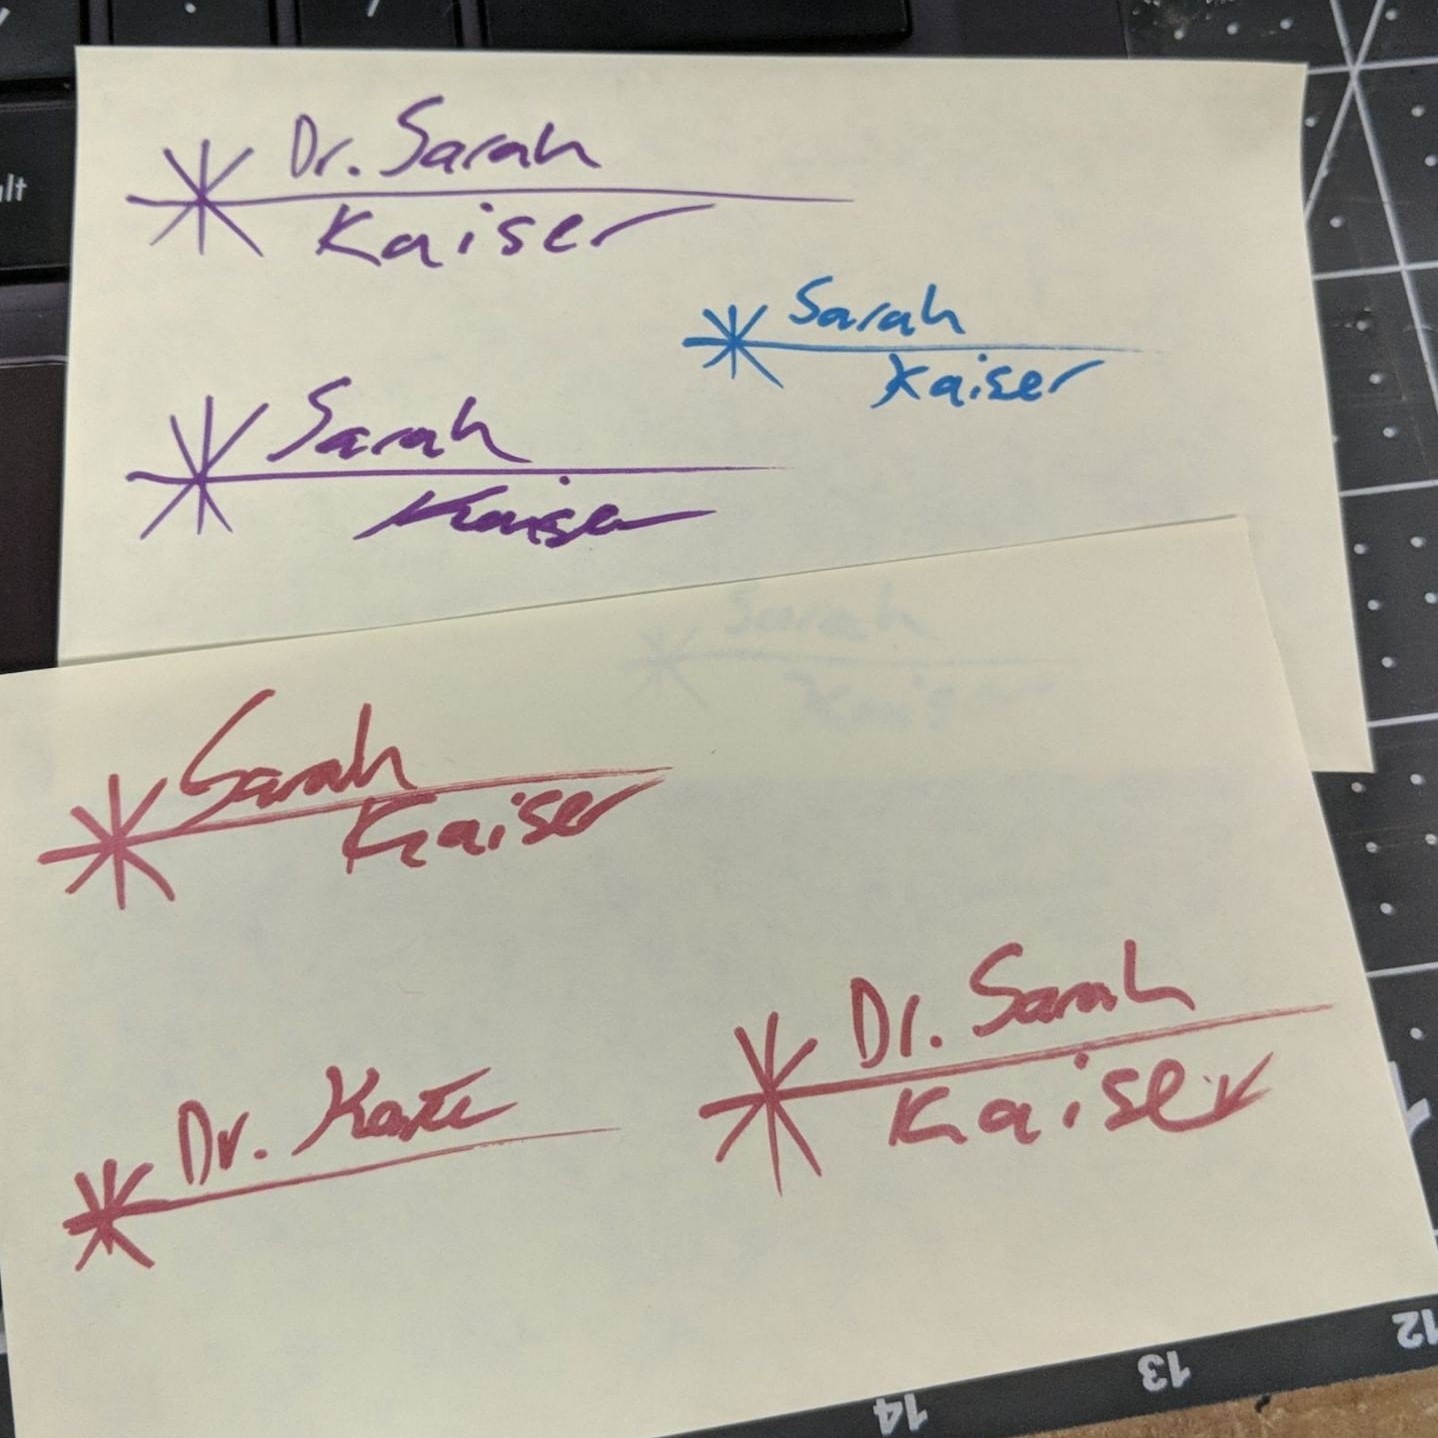 Dr. Sarah
Kaiser
Sarah
Kaiser
Sarah
Kaiser
Sarah
Kaiser
Sarah
Kaiser
Dr. Sarah
Kaiser
Dr.
12
13
14